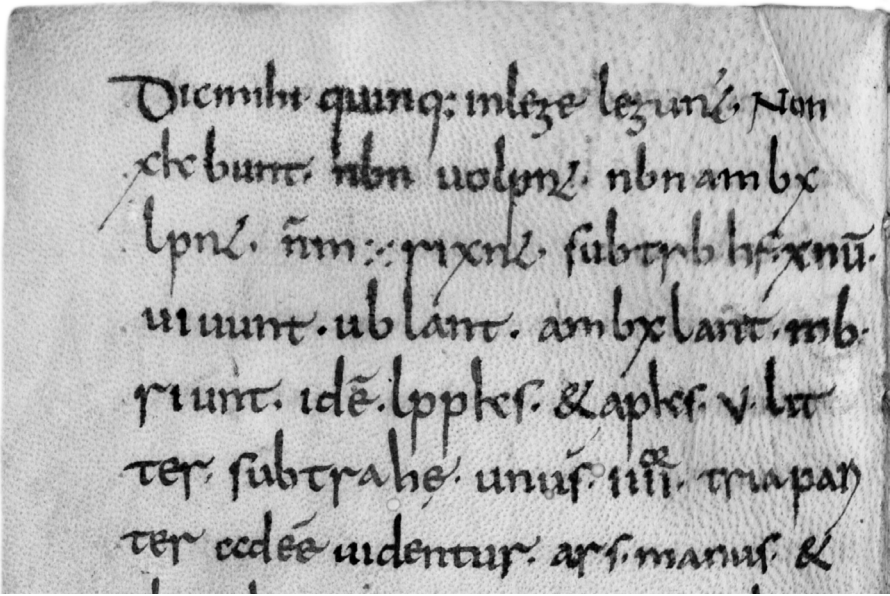 Dicmihi quinq; inlege legunt. Non
xkc bunt. nbn uolpnt. nbnambx
lpnt. n̄m rixnt. subtrb hf xnū.
uiuunt. ub lant. ambxlant. mb.
riunt. idē. lppkes. & apkes. v. lit
ter. subtrahe. unus. iiii. tria pari
ter ccdeē uidentur. ars. manus. &